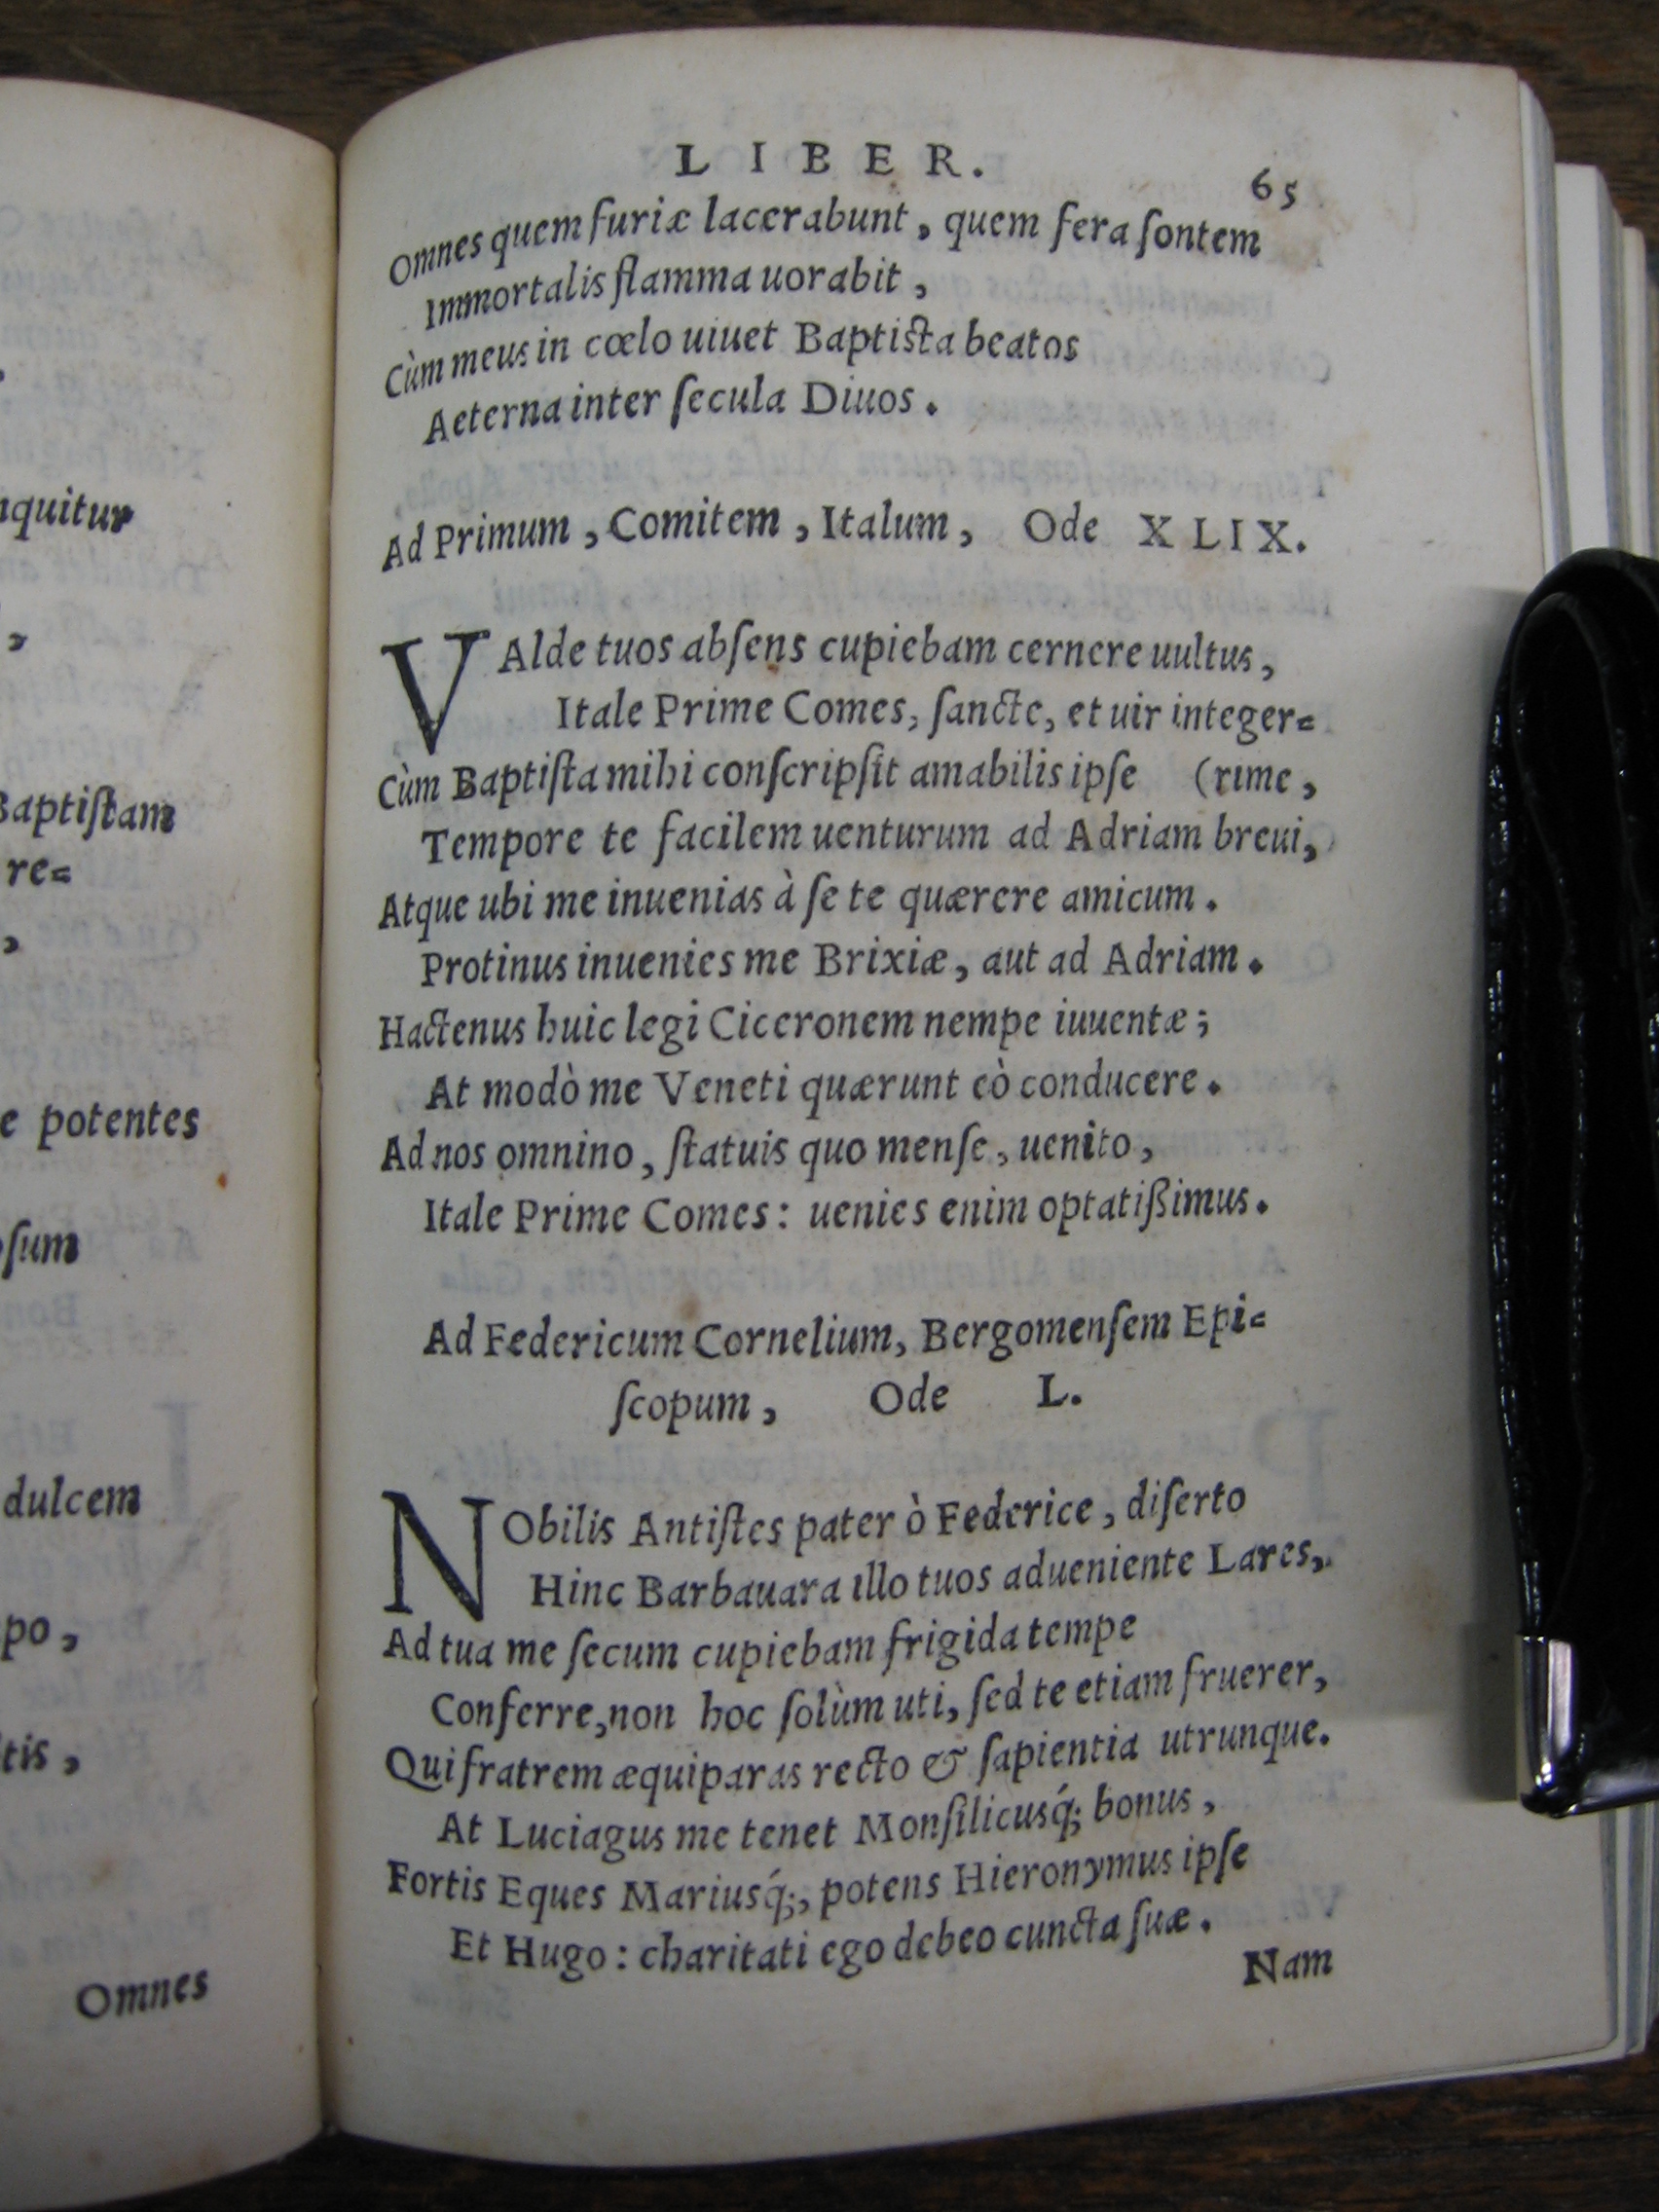 nquitur
,
Baptiſtam
re=
,
e potentes
ſum
dulcem
po,
tis,
Omnes
LIBER.
65
Omnes quem furiæ lacerabunt, quem fera ſontem
Immortalis flamma uorabit,
Cùm meus in cœlo uiuet Baptiſta beatos
Aeterna inter ſecula Diuos.
Ad Primum, Comitem, Italum, Ode XLIX.
VAlde tuos abſens cupiebam cernere uultus,
Itale Prime Comes, ſancte, et uir integer=
Cùm Baptiſta mihi conſcripſit amabilis ipſe (rime,
Tempore te facilem uenturum ad Adriam breui,
Atque ubi me inuenias à ſe te quærere amicum.
Protinus inuenies me Brixiæ, aut ad Adriam.
Hactenus huic legi Ciceronem nempe iuuentæ;
At modò me Veneti quærunt eò conducere.
Ad nos omnino, ſtatuis quo menſe, uenito,
Itale Prime Comes: uenies enim optatißimus.
Ad Federicum Cornelium, Bergomenſem Epi=
ſcopum, Ode L.
NObilis Antiſtes pater ò Federice, diſerto
Hinc Barbauara illo tuos adueniente Lares,
Ad tua me ſecum cupiebam frigida tempe
Conferre, non hoc ſolùm uti, ſed te etiam fruerer,
Qui fratrem æquiparas recto & ſapientia utrunque.
At Luciagus me tenet Monſilicusq́; bonus,
Fortis Eques Mariusq́;, potens Hieronymus ipſe
Et Hugo: charitati ego debeo cuncta ſuæ.
Nam